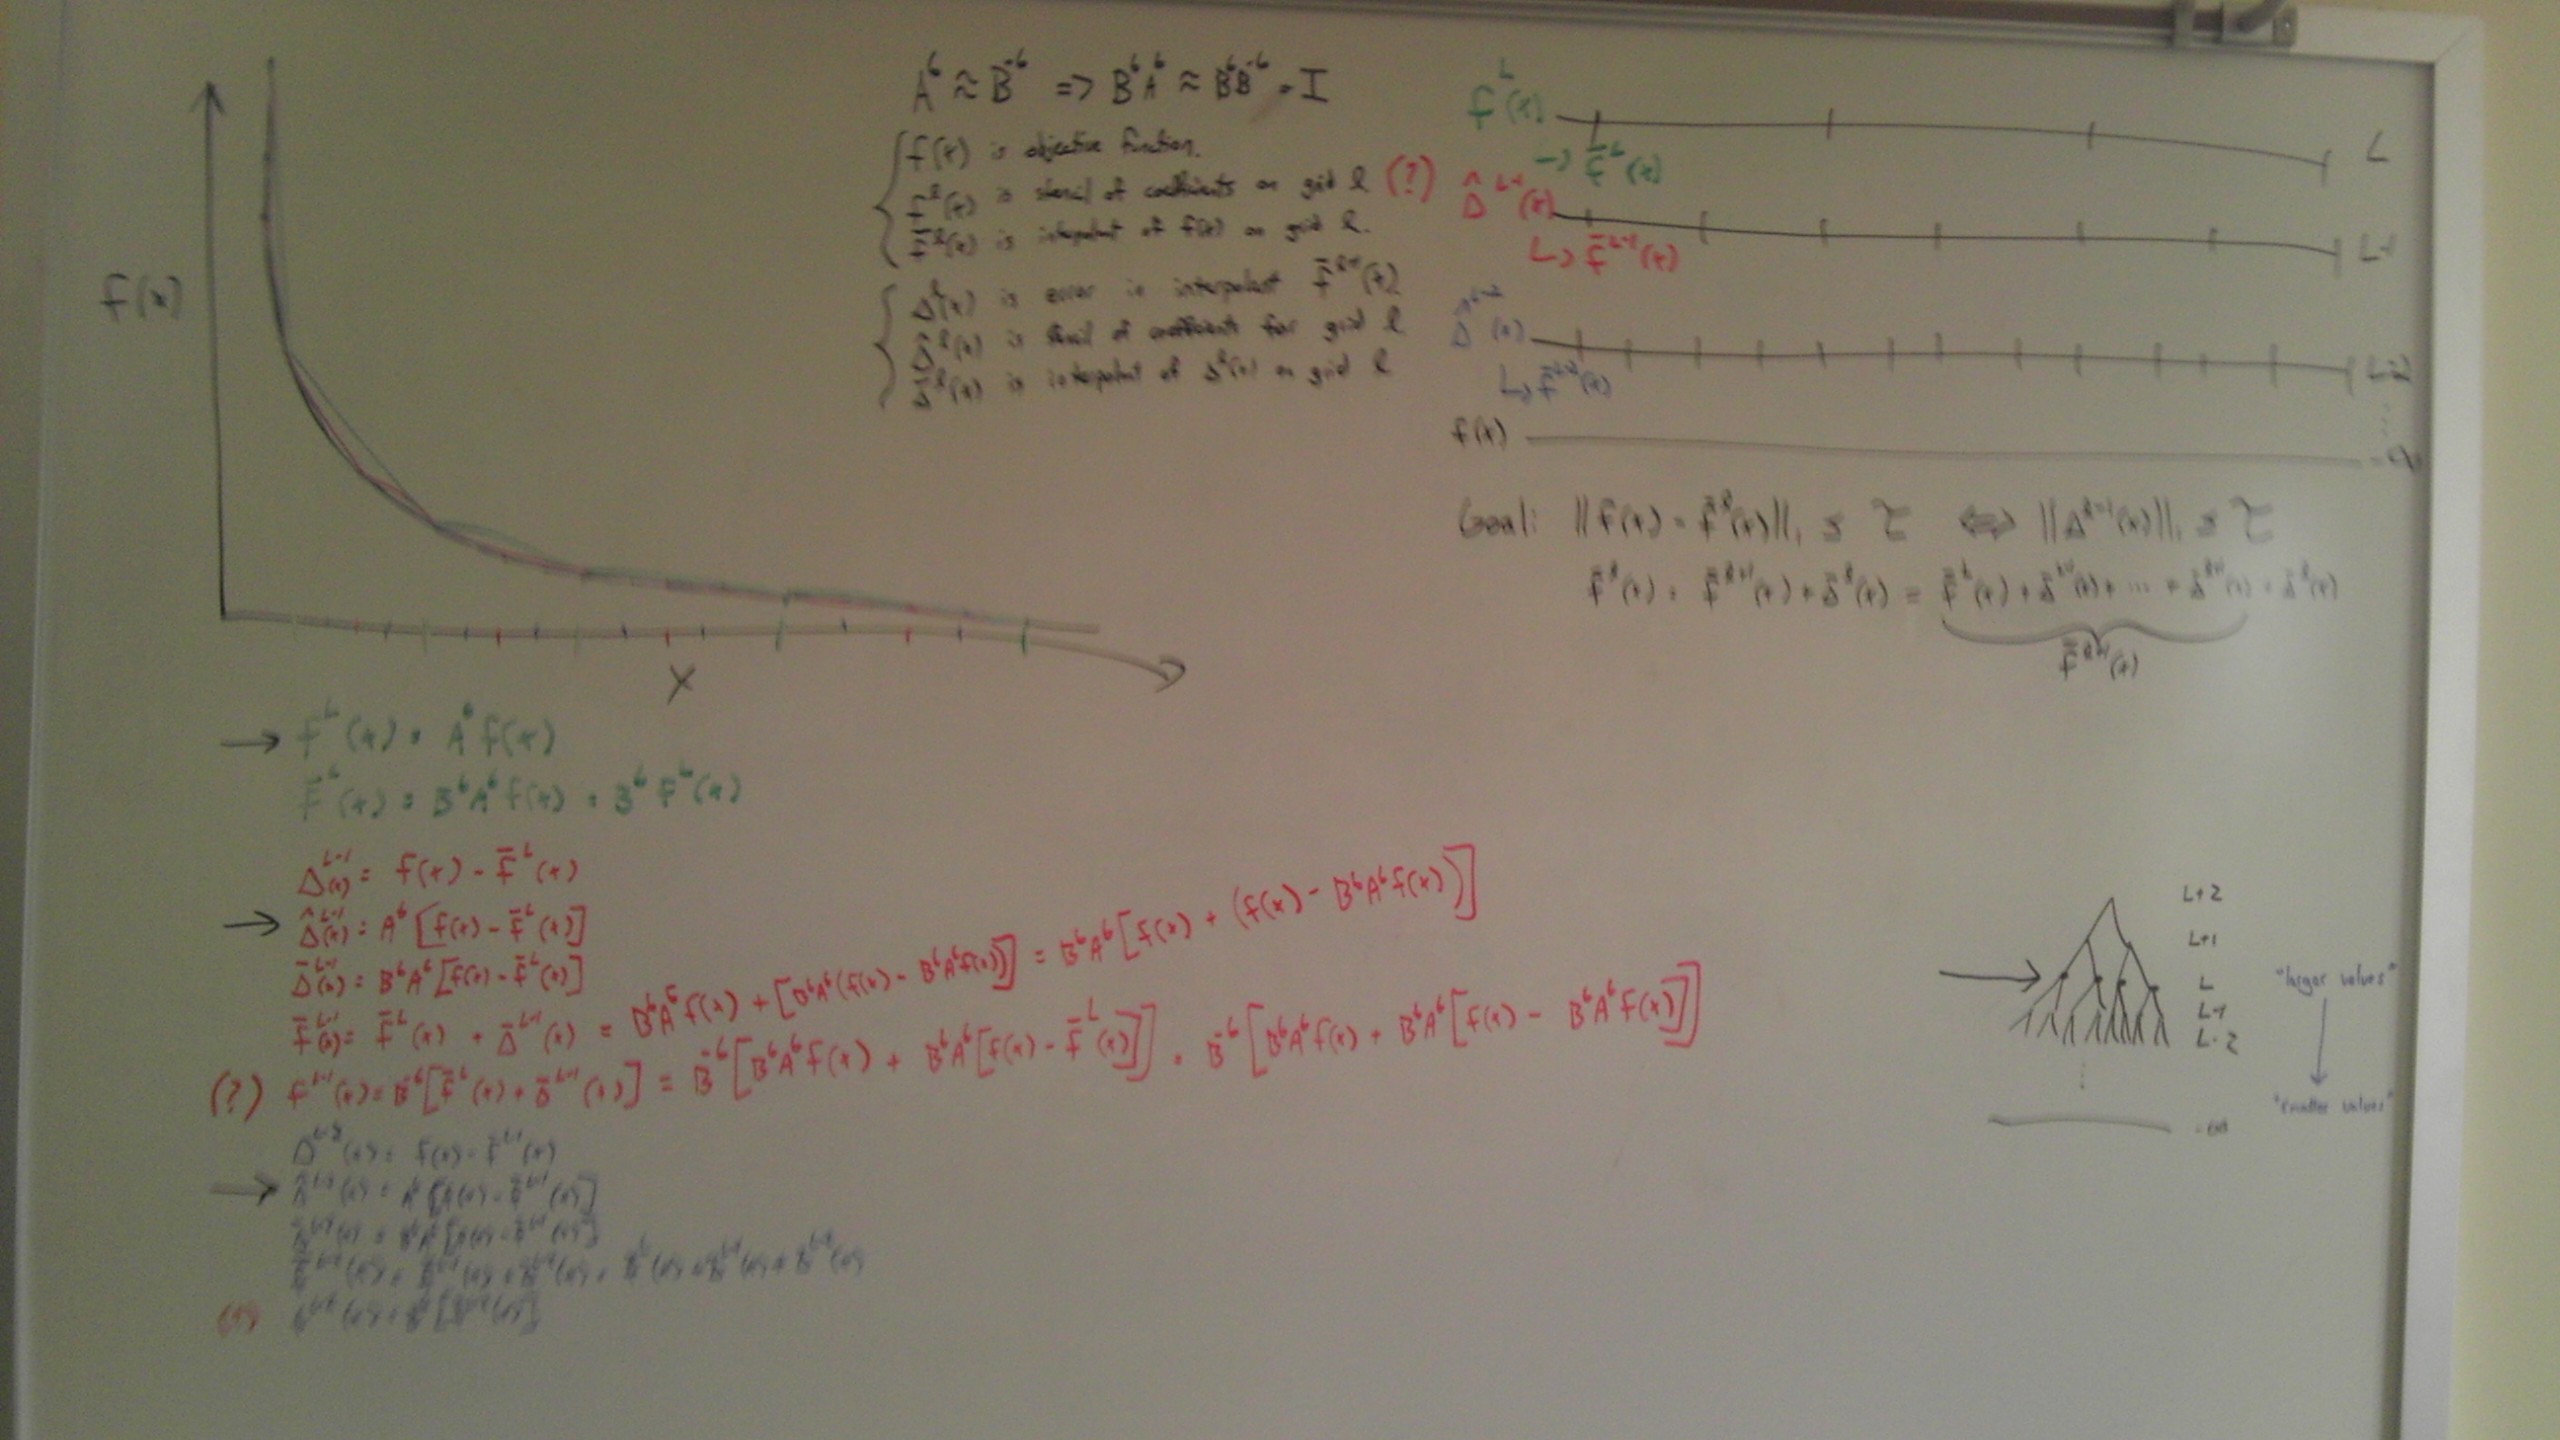 f(x)
X
A⁶ ≈ B⁻⁶ => B⁶A⁶ ≈ B⁶B⁻⁶ = I
f(x) is objective function.
f^l(x) is stencil of coefficients on grid l (?)
f̄^l(x) is interpolant of f(x) on grid l.
Δ^l(x) is error in interpolant f̄^{l+1}(x)
Δ̂^l(x) is stencil of coefficients for grid l
Δ̄^l(x) is interpolant of Δ^l(x) on grid l
f^L(x) L
→ f̄^L(x)
Δ̂^{L-1}(x) L-1
↳ f̄^{L-1}(x)
Δ̂^{L-2}(x) L-2
↳ f̄^{L-2}(x)
f(x) -∞
Goal: ||f(x) - f̄^l(x)||₁ ≤ τ <=> ||Δ^{l-1}(x)||₁ ≤ τ
f̄^l(x) = f̄^{l+1}(x) + Δ̄^l(x) = f̄^L(x) + Δ̄^{L-1}(x) + ... + Δ̄^{l+1}(x) + Δ̄^l(x)
f̄^{l+1}(x)
→ f^L(x) = A⁶f(x)
f̄^L(x) = B⁶A⁶f(x) = B⁶f^L(x)
Δ^{L-1}(x) = f(x) - f̄^L(x)
→ Δ̂^{L-1}(x) = A⁶[f(x) - f̄^L(x)]
Δ̄^{L-1}(x) = B⁶A⁶[f(x) - f̄^L(x)]
f̄^{L-1}(x) = f̄^L(x) + Δ̄^{L-1}(x) = B⁶A⁶f(x) + [B⁶A⁶(f(x) - B⁶A⁶f(x))] = B⁶A⁶[f(x) + (f(x) - B⁶A⁶f(x))]
(?) f^{L-1}(x) = B⁻⁶[f̄^L(x) + Δ̄^{L-1}(x)] = B⁻⁶[B⁶A⁶f(x) + B⁶A⁶[f(x) - f̄^L(x)]] = B⁻⁶[B⁶A⁶f(x) + B⁶A⁶[f(x) - B⁶A⁶f(x)]]
Δ^{L-2}(x) = f(x) - f̄^{L-1}(x)
→ Δ̂^{L-2}(x) = A⁶[f(x) - f̄^{L-1}(x)]
Δ̄^{L-2}(x) = B⁶A⁶[f(x) - f̄^{L-1}(x)]
L+2
L+1
L
L-1
L-2
"larger values"
"smaller values"